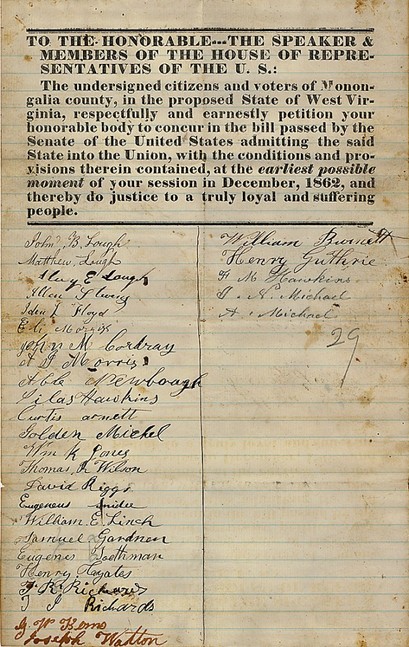 TO THE HONORABLE---THE SPEAKER &
MEMBERS OF THE HOUSE OF REPRE-
SENTATIVES OF THE U. S.:
The undersigned citizens and voters of Monon-
galia county, in the proposed State of West Vir-
ginia, respectfully and earnestly petition your
honorable body to concur in the bill passed by the
Senate of the United States admitting the said
State into the Union, with the conditions and pro-
visions therein contained, at the earliest possible
moment of your session in December, 1862, and
thereby do justice to a truly loyal and suffering
people.
John B. Lough
Matthew Lough
E Lough
Allen
Floyd
E
John M Cordray
Morris
Able Newbough
Silas Hawkins
Curtis arnett
Golden Michel
Wm K Jones
Thomas R Wilson
David Riggs
Eugenous
William E. Linch
Samuel Gardner
Eugenis
Henry
F R Richards
Richards
W
Joseph Watton
William Burnett
Henry Guthrie
F M Hawkins
A. Michael
A. Michael
29